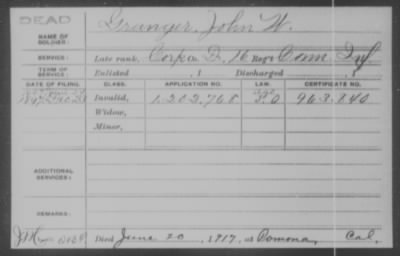 DEAD
NAME OF SOLDIER: Granger, John W.
SERVICE: Late rank, Corp Co. D, 16 Reg't Conn Inf
TERM OF SERVICE: Enlisted , 1 Discharged , 1
DATE OF FILING. CLASS. APPLICATION NO. LAW. CERTIFICATE NO.
Invalid, 1.202.768 963.840
Widow,
Minor,
ADDITIONAL SERVICES:
REMARKS:
Died June 20, 1917, at Pomona, Cal.